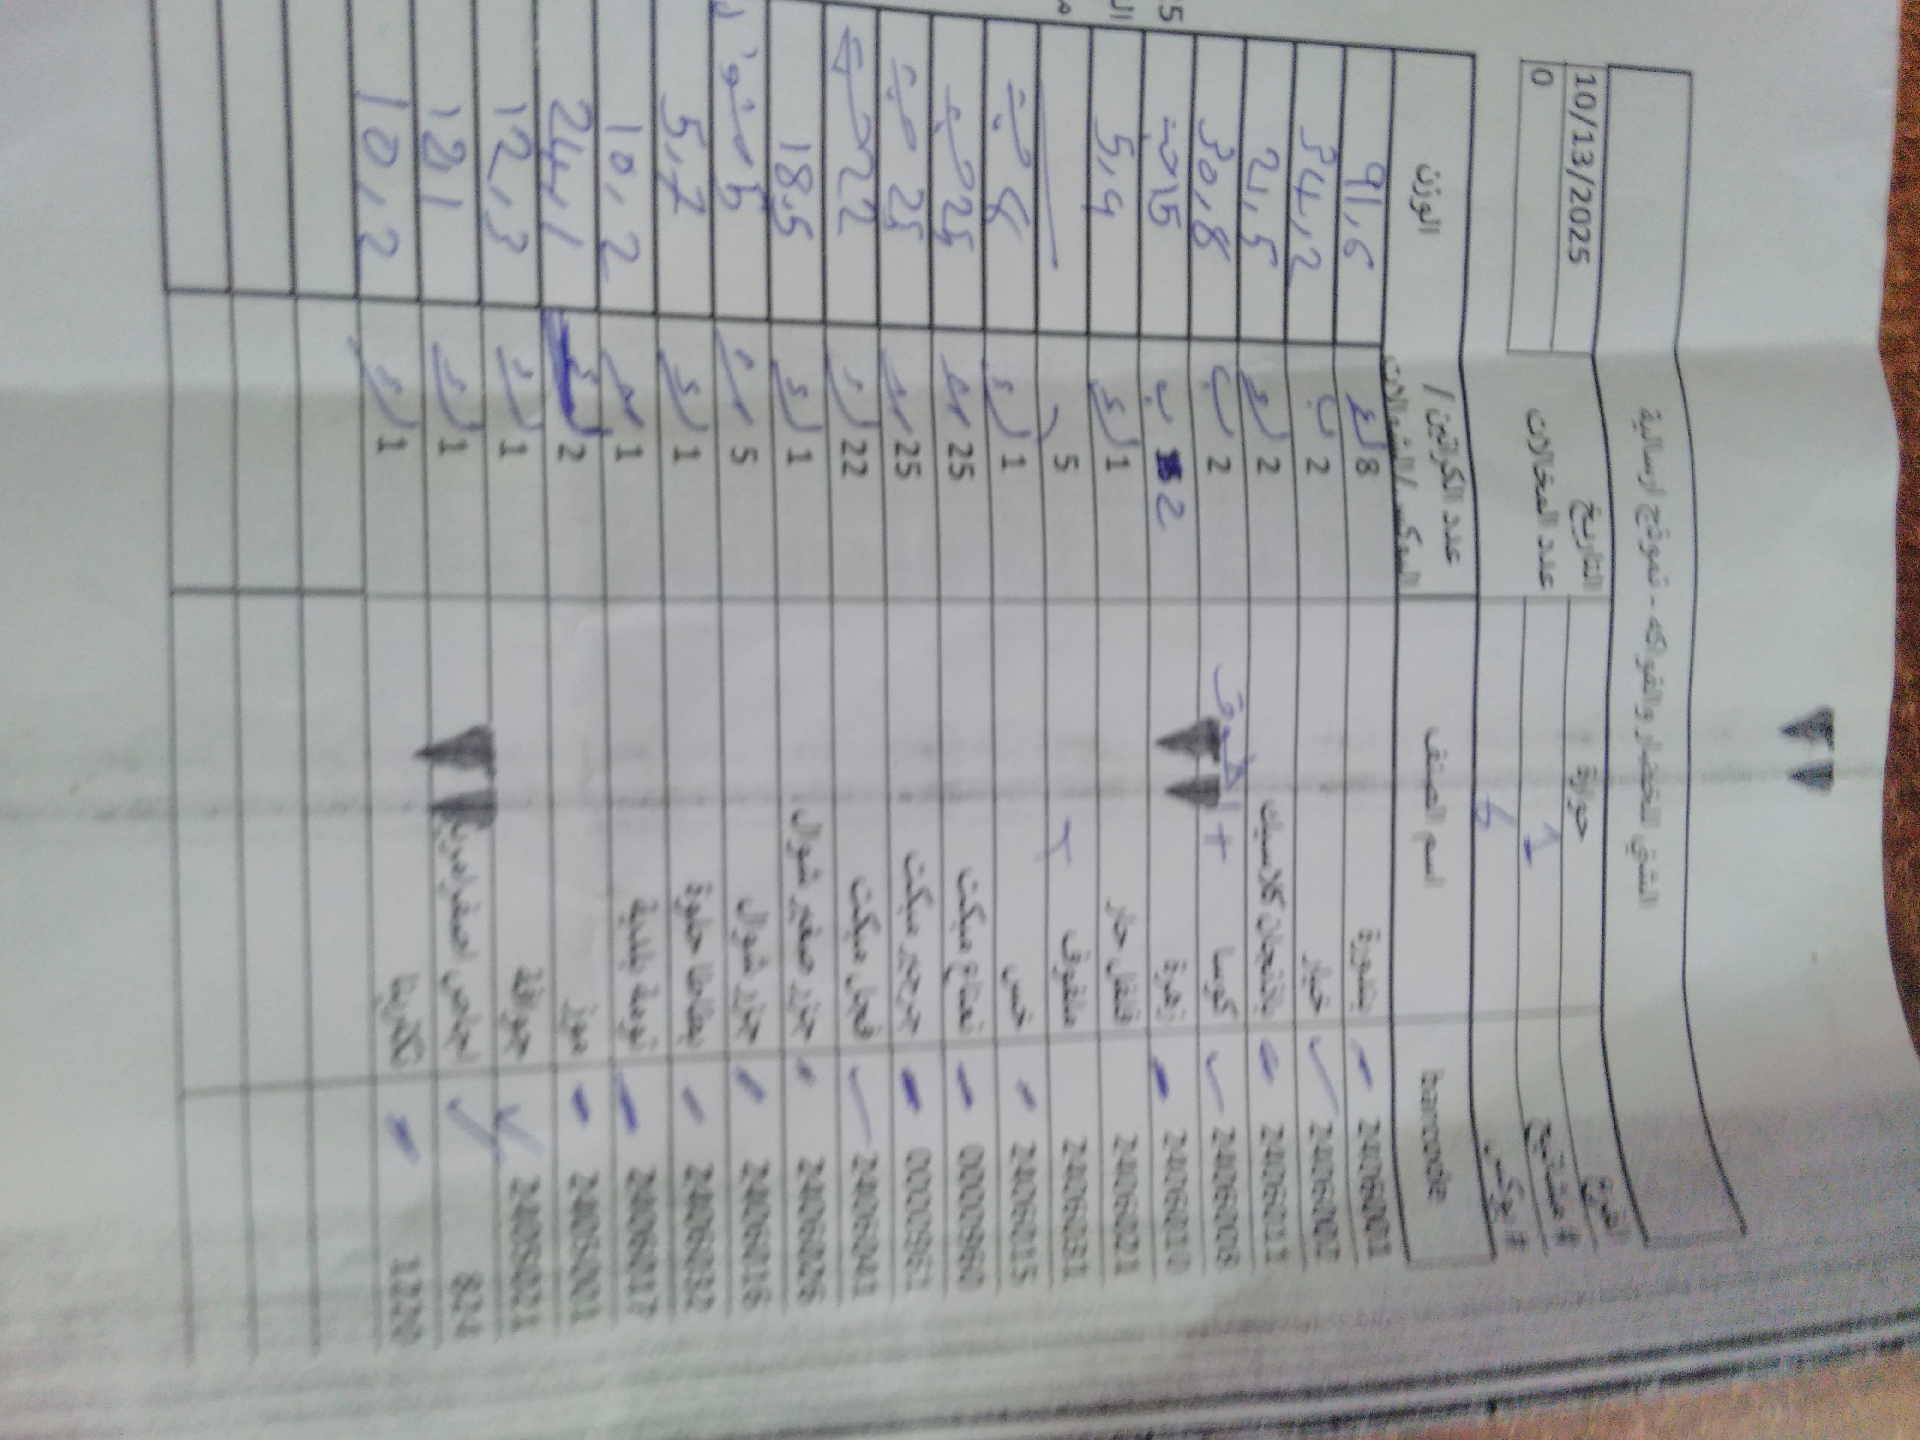 الشني للخضار والفواكه - نموذج ارسالية
الفرع حوارة التاريخ 10/13/2025
# مشاتيح 1 عدد المخالات 0
# بوكس 6
barcode اسم الصنف عدد الكراتين / البوكس/الشوالات الوزن
2406001 بندورة 8 91,6
2406002 خيار 2 ب 34,2
2406011 باذنجان كلاسيك 2 21,5
2406008 كوسا + 2 ب 30,8
2406010 زهرة 2 ب 15 حبة
2406021 فلفل حار 1 5,9
2406031 ملفوف x 5
2406015 خس 1 8 حبة
0000960 نعناع مبكت 25 25 حبه
0000961 جرجير مبكت 25 25 حبه
2406041 فجل مبكت 22 22 حبة
2406026 جزر صغير شوال 1 18,5
2406016 جزر شوال 5
2406032 بطاطا حلوة 1 5,7
2406017 ثومة بلدية 1 10,2
2405001 موز 2 24,1
2405021 جوافة 1 12,3
824 اجاص اصفر 1
1220 نكترينا 1 10,2